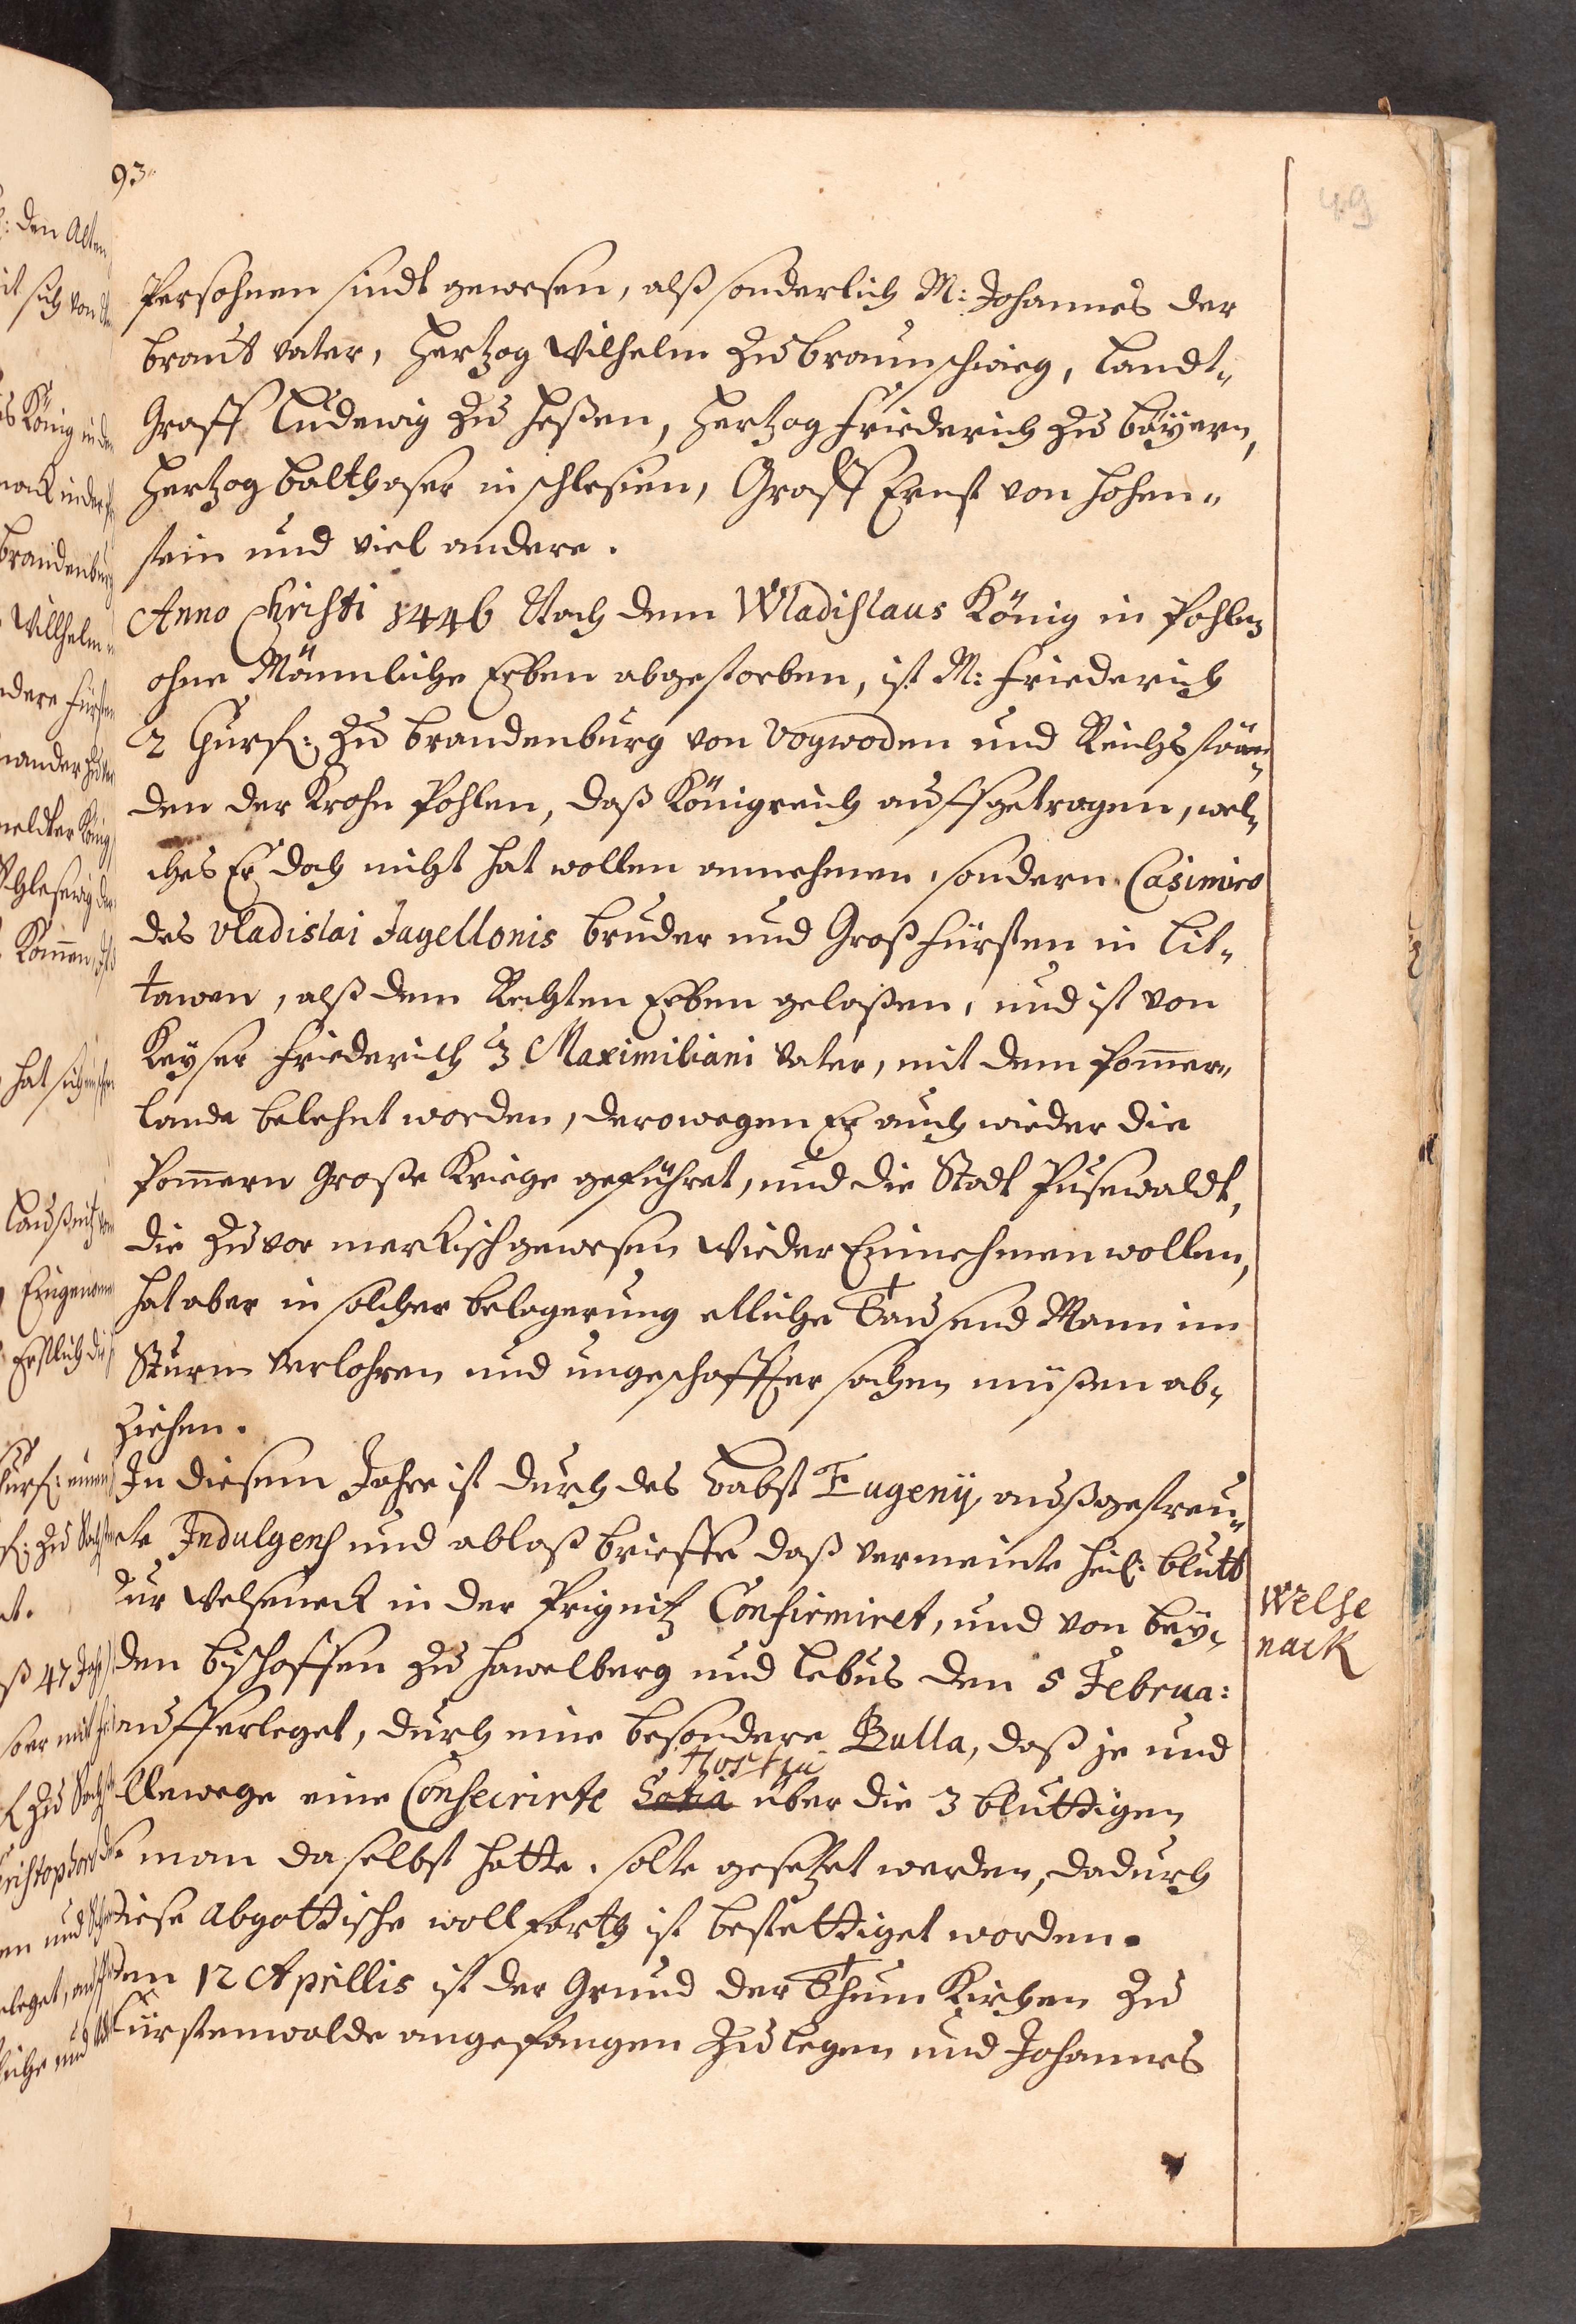 93
49
Persohnen sindt gewesen, alß sonderlich M: Johannes der
braut vater, Hertzog Wilhelm zu braunschwieg, Landt„
Graff Ludewig zu Heßen, Hertzog Friederich zu bäyern,
Hertzog balthaser in schlesien, Graff Ernst von Hohen„
stein und viel andere.
Anno Christi 1446 Nach dem Wladislaus König in Pohlen
ohne Männliche Erben abgestorben, ist M: Friederich
2 Churf: zu brandenburg von Voywoden und Reichsstän„
den der Krohn Pohlen, daß Königreich auffgetragen, wel„
ches Er doch nicht hat wollen annehmen, sondern Casimiro
des Vladislai Jagellonis bruder und Großfürsten in Lit„
tawen, alß dem Rechten Erben gelaßen, und ist von
Keyser Friederich 3 Maximiliani vater, mit dem Pom̄er„
lande belehnt worden, derowegen Er auch wieder die
Pom̄ern Große Kriege geführet, und die Stadt Pusewaldt,
die zuvor merkisch gewesen wieder Einnehmen wollen,
hat aber in solcher belagerung etliche Tausend Mann im
Sturm verlohren und ungeschaffter sachen müßen ab„
ziehen.
In diesem Jahre ist durch des Babst Eugenij außgestreu„
te Indulgens und ablaß brieffe daß vermeinte heil: blutt
zur Welseneck in der Prignitz Confirmiret, und von bey„
den bischoffen zu Hawelberg und Lebus den 5 Februa:
aufferleget, durch eine besondere Bulla, daß je und
hostia
allewege eine Consecrirte Satia uber die 3 bluttigen
die man daselbst hatte, solte gesetzet werden, dadurch
diese Abgottische wollfarth ist bestettiget worden.
den 12 Aprillis ist der Grund der Thum Kirchen zu
Fürstenwalde angefangen zu legen und Johannes
Welse
nack